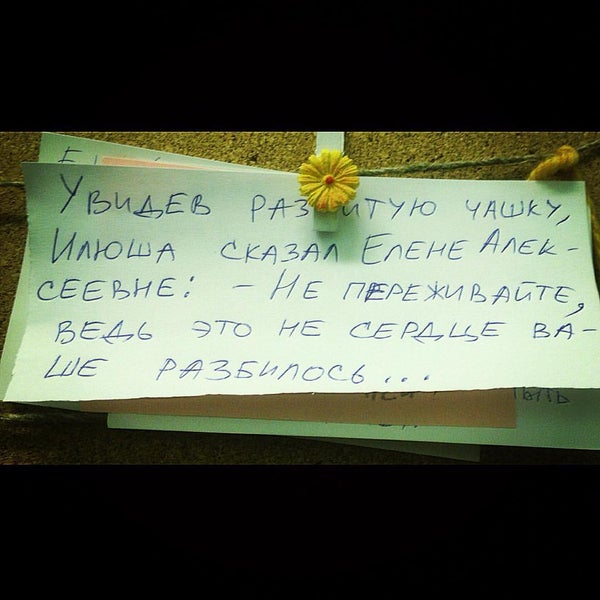 Увидев разбитую чашку,
Илюша сказал Елене Алек-
сеевне: - Не переживайте,
ведь это не сердце ва-
ше разбилось...